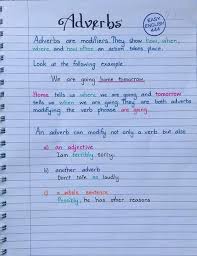 Adverbs
EASY
ENGLISH
444
Adverbs are modifiers. They show how, when,
where, and how often an action takes place.
Look at the following example.
We are going home tomorrow.
Home tells us where we are going and tomorrow
tells us when we are going. They are both adverbs
modifying the verb phrase are going.
An adverb can modify not only a verb but also
a) an adjective
I am terribly sorry.
b) another adverb
Don't talk so loudly.
c) a whole sentence
Possibly, he has other reasons